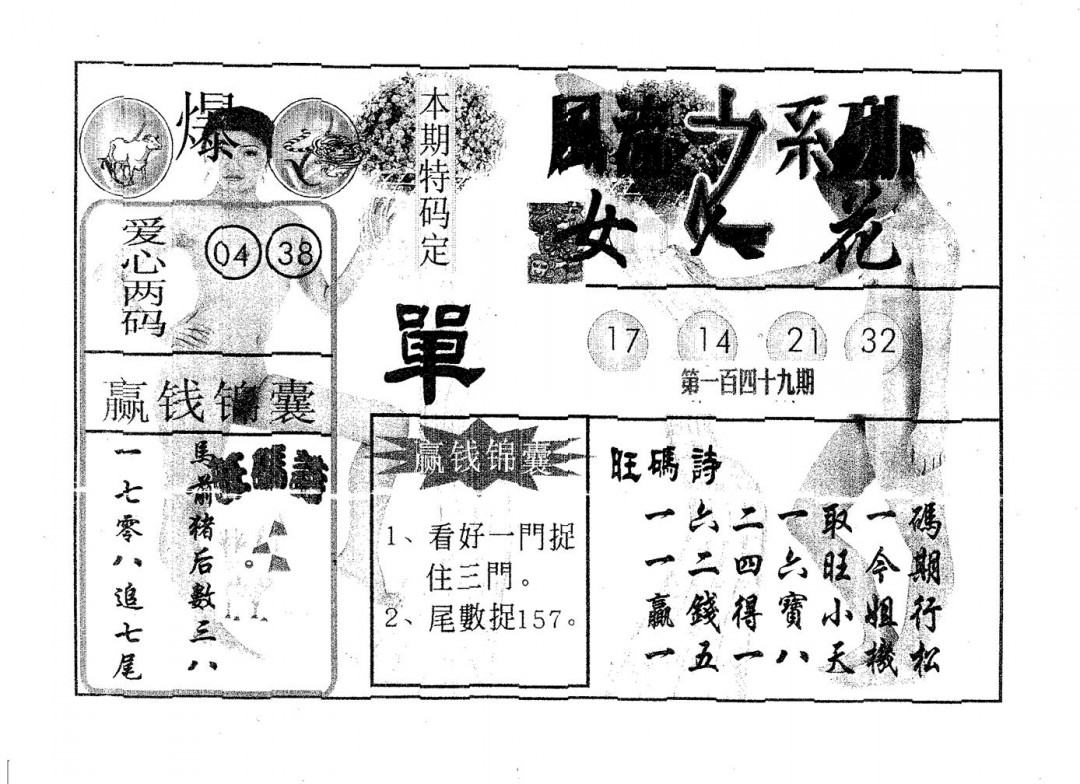 爆
爱心两码
04 38
赢钱锦囊
馬前猪后數三八
一七零八追七尾
本期特码定
單
赢钱锦囊
1、看好一門捉
住三門。
2、尾數捉157。
風流之系列
女人花
17 14 21 32
第一百四十九期
旺碼詩
一六二一取一碼
一二四六旺今期
贏錢得寶小姐行
一五一八天機松